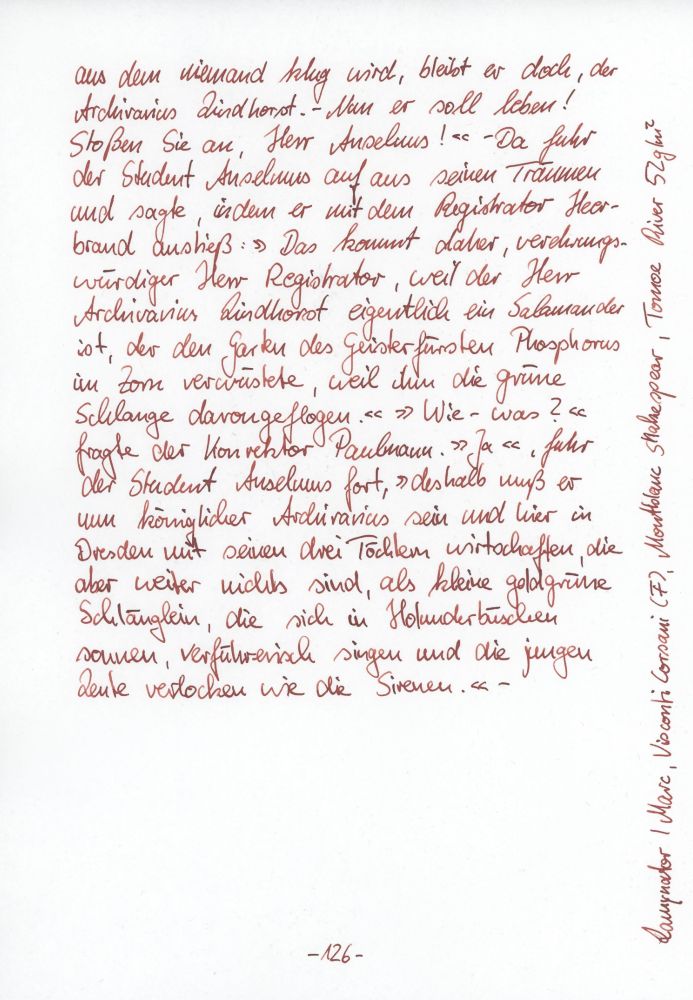 aus dem niemand klug wird, bleibt er doch, der
Archivarius Lindhorst. – Nun er soll leben!
Stoßen Sie an, Herr Anselmus!« – Da fuhr
der Student Anselmus auf aus seinen Träumen
und sagte, indem er mit dem Registrator Heer-
brand anstieß: »Das kommt daher, verehrungs-
würdiger Herr Registrator, weil der Herr
Archivarius Lindhorst eigentlich ein Salamander
ist, der den Garten des Geisterfürsten Phosphorus
im Zorn verwüstete, weil ihm die grüne
Schlange davongeflogen.« »Wie – was?«
fragte der Konrektor Paulmann. »Ja«, fuhr
der Student Anselmus fort, »deshalb muß er
nun königlicher Archivarius sein und hier in
Dresden mit seinen drei Töchtern wirtschaften, die
aber weiter nichts sind, als kleine goldgrüne
Schlänglein, die sich in Holunderbüschen
sonnen, verführerisch singen und die jungen
Leute verlocken wie die Sirenen.« –
-126-
Lamynator | Marc, Visconti Corsani (F), Montblanc Shakespear, Tomoe River 52g/m²